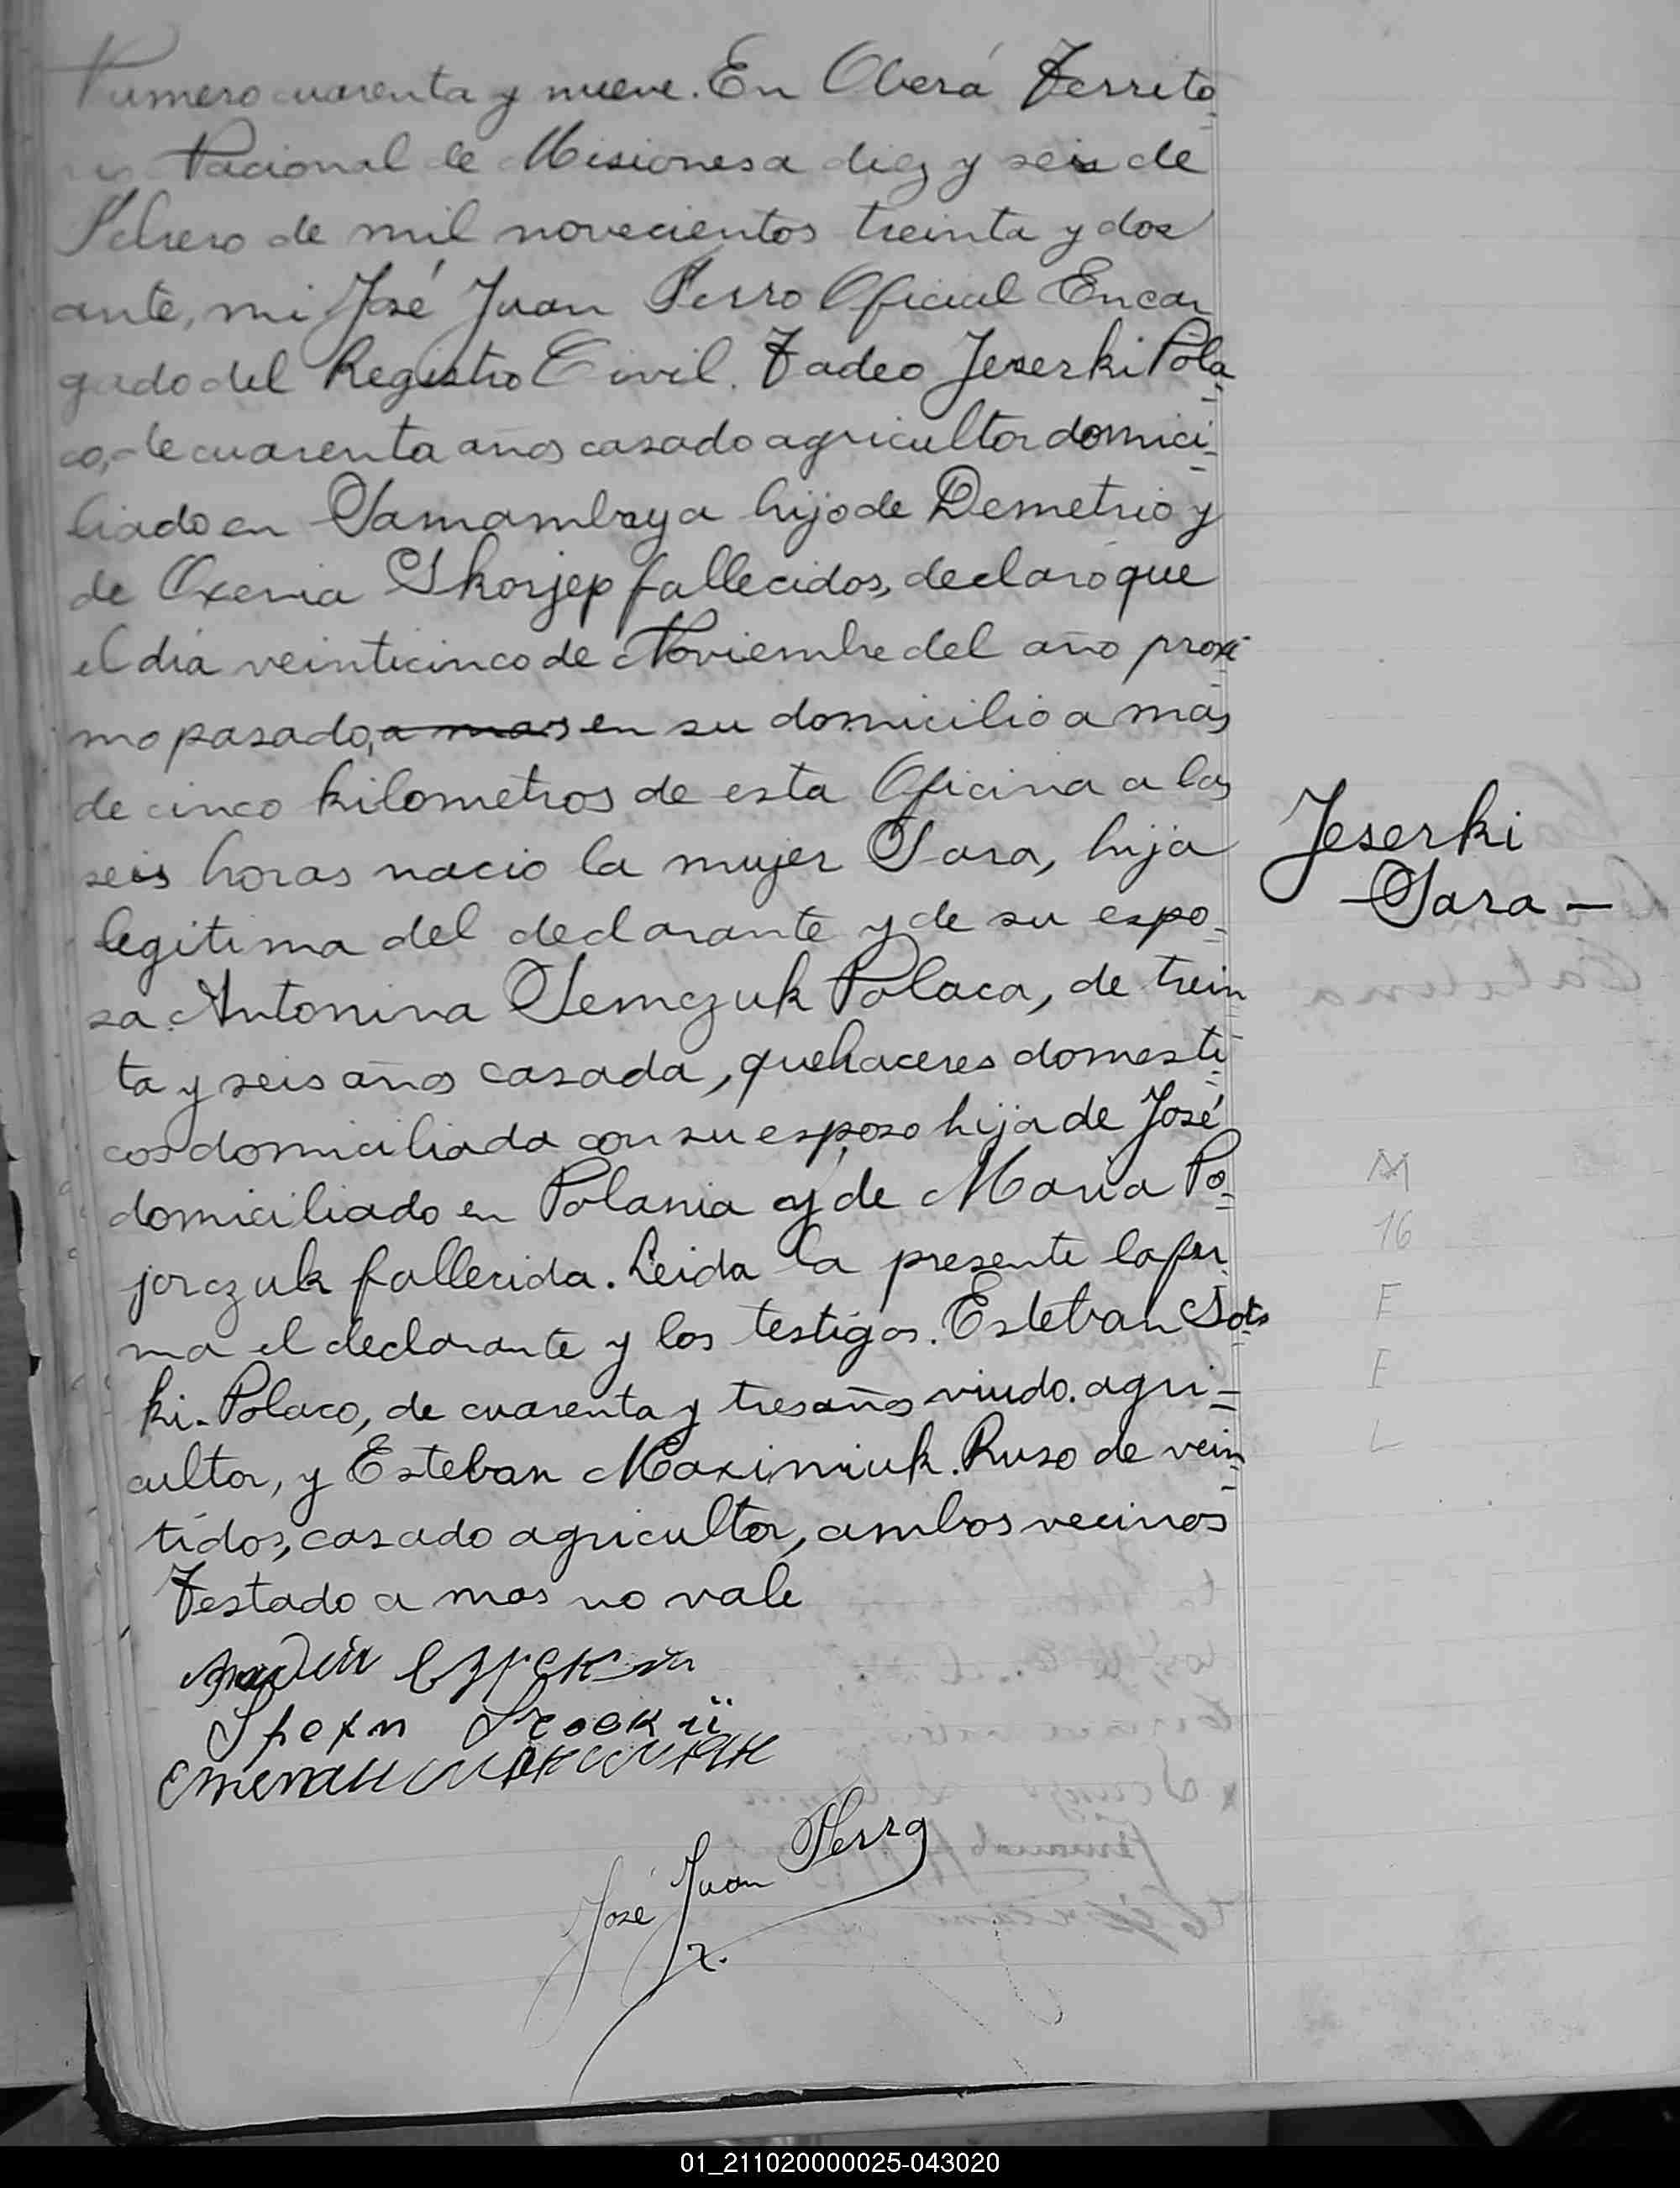 Numero cuarenta y nueve. En Oberá Territo-
rio Nacional de Misiones a diez y seis de
Febrero de mil novecientos treinta y dos
ante, mi José Juan Ferro Oficial Encar-
gado del Registro Civil. Tadeo Jeserki Pola-
co, de cuarenta años casado agricultor domici-
liado en Samambaya hijo de Demetrio y
de Oxenia Skorjep fallecidos, declaró que
el día veinticinco de Noviembre del año proxi-
mo pasado, a mas en su domicilio a mas
de cinco kilometros de esta Oficina a las
seis horas nacio la mujer Sara, hija
legitima del declarante y de su espo-
sa Antonina Semczuk Polaca, de trein-
ta y seis años casada, quehaceres domesti-
cos domiciliada con su esposo hija de José
domiciliado en Polania y de Maria Po-
jorczuk fallecida. Leida la presente la fir-
ma el declarante y los testigos. Esteban Sots-
ki. Polaco, de cuarenta y tres años viudo. agri-
cultor, y Esteban Maximiuk. Ruso de vein-
tidos, casado agricultor, ambos vecinos
Testado a mas no vale
José Juan Ferro
Jeserki
- Sara -
M
16
F
F
L
01_211020000025-043020